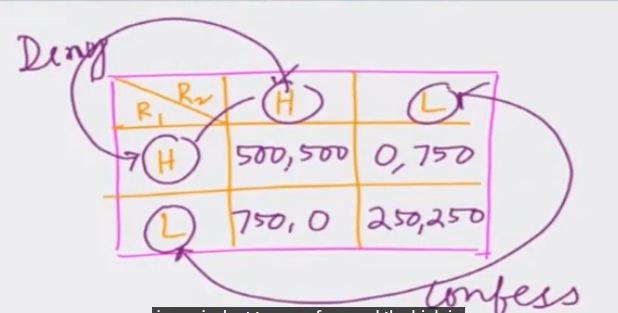 Deny
R1 R2 H L
H 500,500 0,750
L 750,0 250,250
Confess